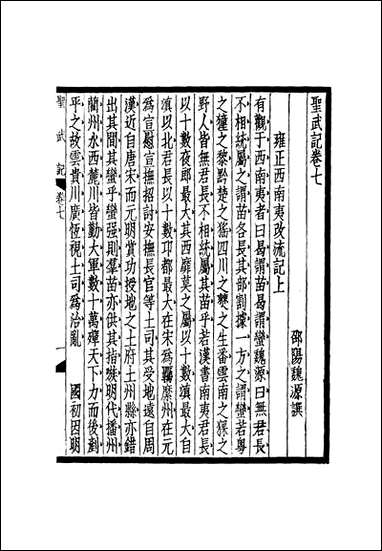 聖武記卷七
邵陽魏源譔
雍正西南夷改流記上
有觀于西南夷者曰曷謂苗曷謂蠻魏源曰無君長
不相統屬之謂苗各長其部割據一方之謂蠻若粵
之獞之黎黔楚之猺四川之僰之生番雲南之猓之
野人皆無君長不相統屬其苗乎若漢書南夷君長
以十數夜郎最大其西靡莫之屬以十數滇最大自
滇以北君長以十數邛都最大在宋爲羈縻州在元
爲宣慰宣撫招討安撫長官等土司其受地遠自周
漢近自唐宋而元明賞功授地之土府土州縣亦錯
出其間其蠻乎蠻强則羣苗亦供其指嗾明代播州
藺州水西麓川皆勤大軍數十萬殫天下力而後剗
平之故雲貴川廣恆視土司爲治亂　國初因明
聖武記 卷七 一